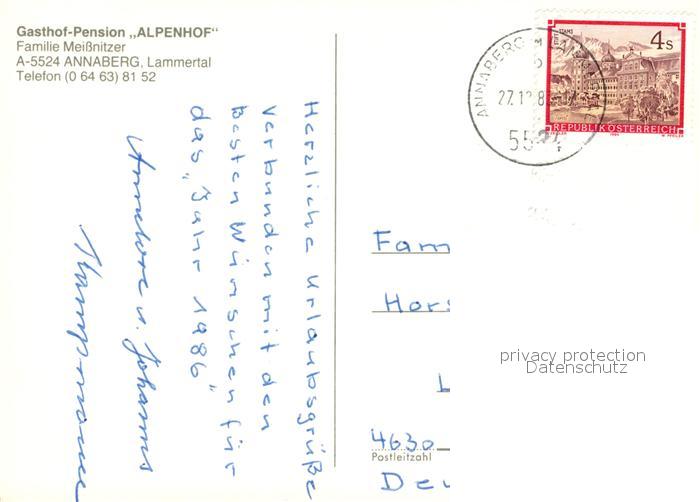 Gasthof-Pension „ALPENHOF“
Familie Meißnitzer
A-5524 ANNABERG, Lammertal
Telefon (0 64 63) 81 52
STIFT STAMS
4s
REPUBLIK ÖSTERREICH
ANNABERG
27.12.8
5524
Herzliche Urlaubsgrüße
verbunden mit den
Besten Wünschen für
das „Jahr 1986“
Annelore u. Johannes
Fam
Hors
L
4630
Postleitzahl
Deu
privacy protection
Datenschutz